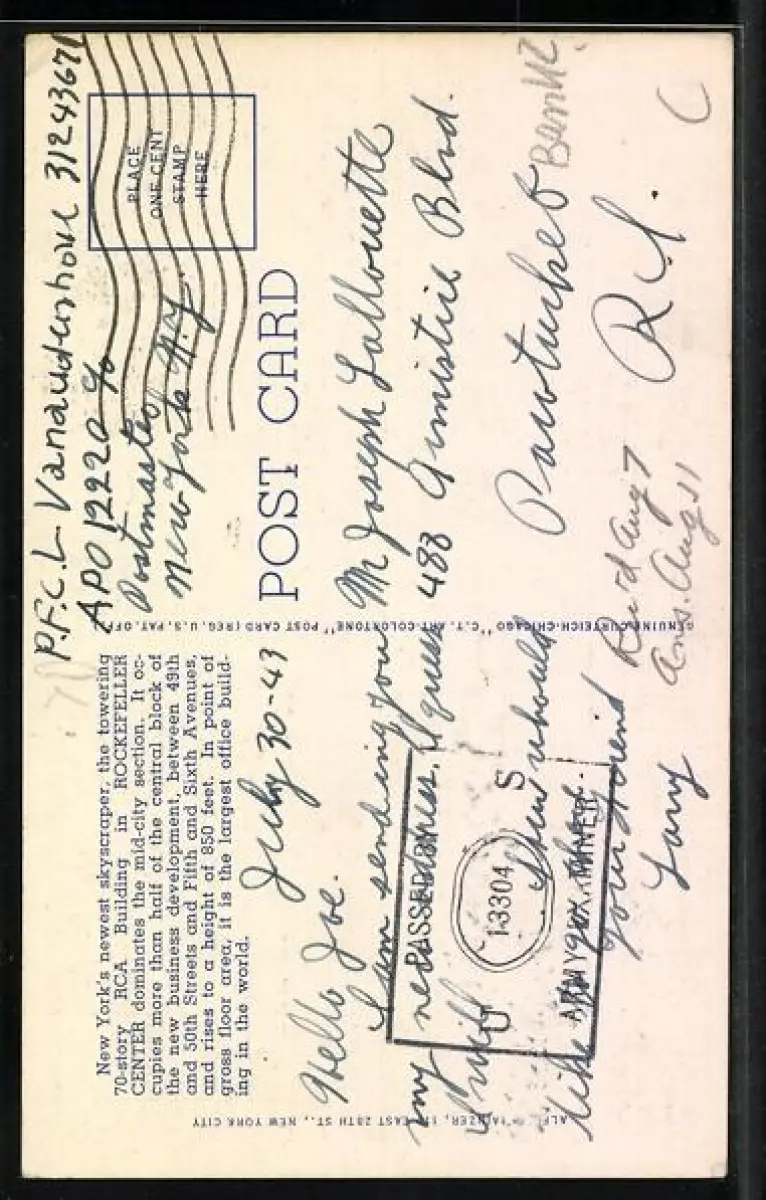 P.F.C. L Vanaudenhove 31243671
APO 12220 %
Postmaster
New York N.Y
PLACE
ONE CENT
STAMP
HERE
New York's newest skyscraper, the towering
70-story RCA Building in ROCKEFELLER
CENTER dominates the mid-city section. It oc-
cupies more than half of the central block of
the new business development, between 49th
and 50th Streets and Fifth and Sixth Avenues,
and rises to a height of 850 feet. In point of
gross floor area, it is the largest office build-
ing in the world.
POST CARD
July 30-43
Hello Joe.
I am sending you
my new address. I guess
you should
like
your friend
Larry
PASSED BY
U 13304 S
ARMY EXAMINER
Mr Joseph Lallouette
488 Armistice Blvd.
Pawtucket
R.I.
Rec'd Aug 7
Ans. Aug 11
GENUINE CURTEICH-CHICAGO "C.T. ART-COLORTONE" POST CARD (REG. U.S. PAT. OFF.)
EAST 28TH ST., NEW YORK CITY